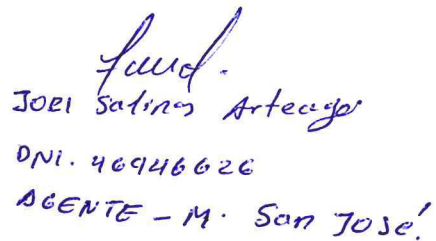 JOEl Salinas Arteaga
DNI. 46946626
AGENTE - M. San JOSé!